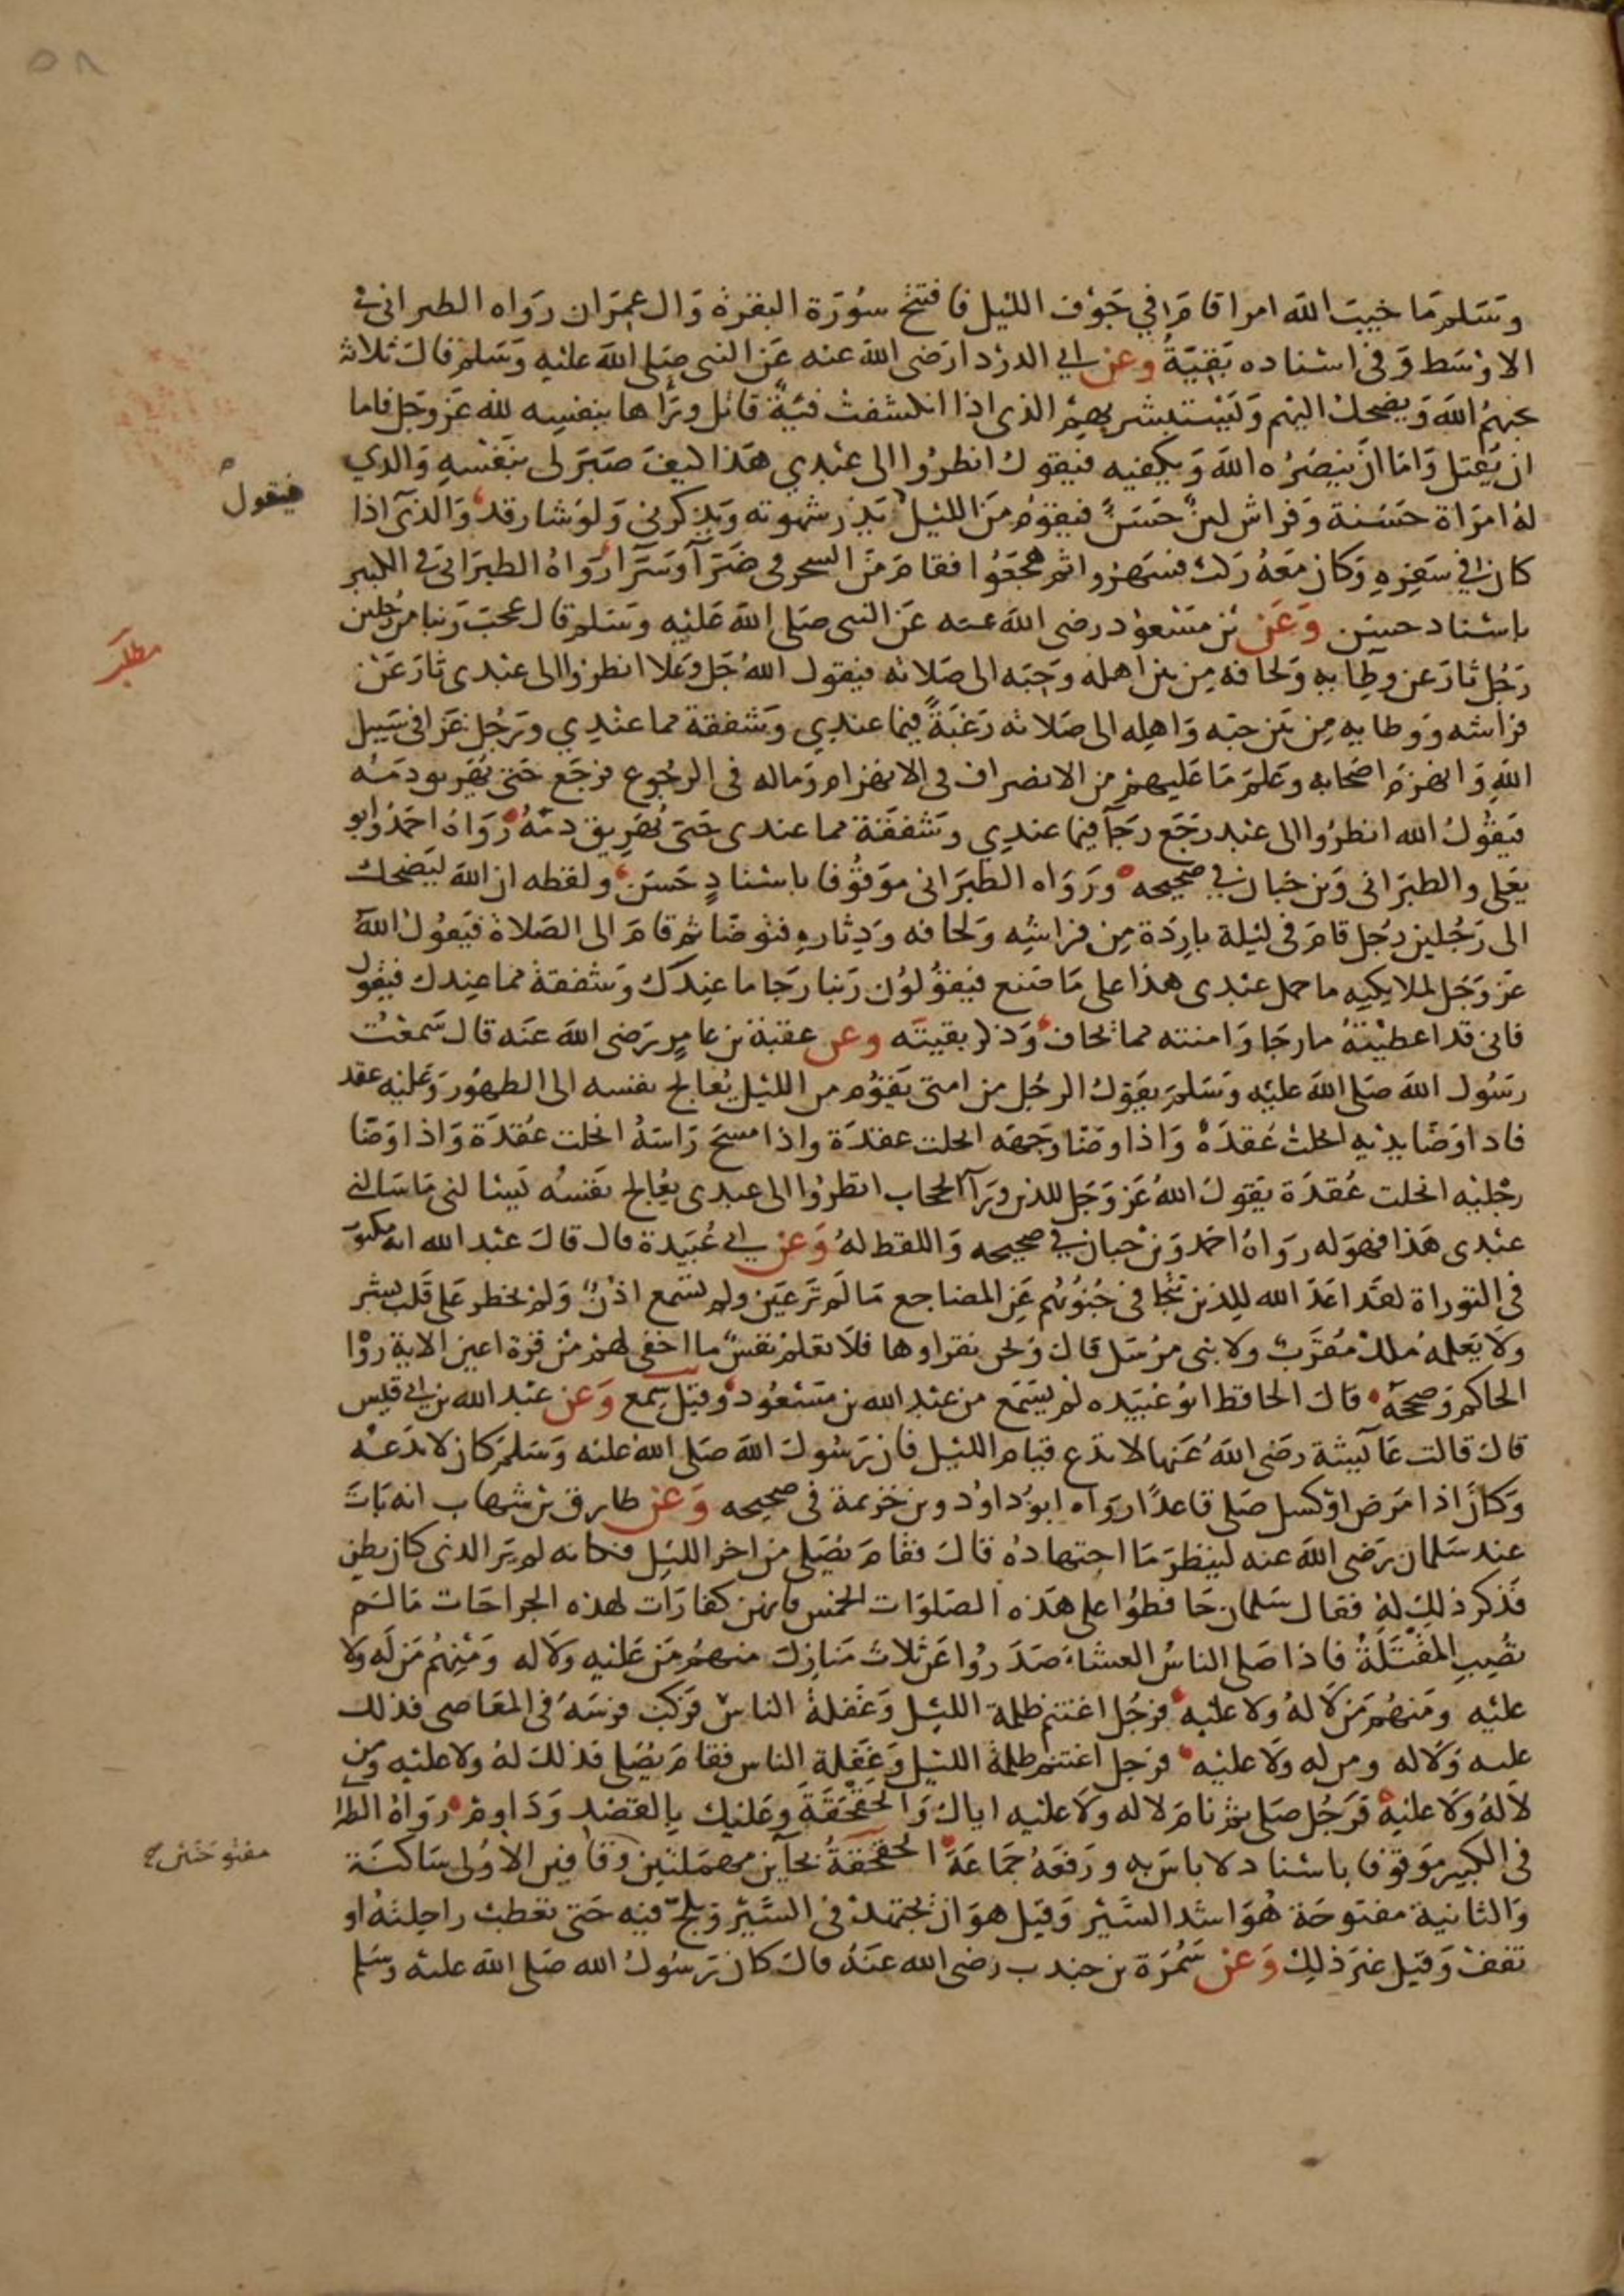 ٥٨
وسلم ما خيب الله امرا قام في جوف الليل فافتتح سورة البقرة وال عمران رواه الطبراني في
الاوسط وفي اسناده بقية وعن ابي الدرداء رضي الله عنه عن النبي صلى الله عليه وسلم قال ثلاثة
يحبهم الله ويضحك اليهم ويستبشر بهم الذي اذا انكشفت فئة قاتل وراها بنفسه لله عز وجل فاما
ان يقتل واما ان ينصره الله ويكفيه فيقول انظروا الى عبدي هذا كيف صبر لي بنفسه والذي
له امراة حسنة وفراش لين حسن فيقوم من الليل يذر شهوته ويذكرني ولو شا رقد والذي اذا
كان في سفره وكان معه ركب فسهروا ثم هجعوا فقام من السحر في ضرا وسرا رواه الطبراني في الكبير
باسناد حسن وعن بن مسعود رضي الله عنه عن النبي صلى الله عليه وسلم قال عجب ربنا من رجلين
رجل ثار عن وطايه ولحافه من بين اهله وحبه الى صلاته فيقول الله جل وعلا انظروا الى عبدي ثار عن
فراشه ووطايه من بين حبه واهله الى صلاته رغبة فيما عندي وشفقة مما عندي ورجل غزا في سبيل
الله وانهزم اصحابه وعلم ما عليهم من الانصراف في الانهزام وماله في الرجوع فرجع حتى يهريق دمه
فيقول الله انظروا الى عبد رجع رجا فيما عندي وشفقة مما عندي حتى يهريق دمه رواه احمد وابو
يعلى والطبراني وبن حبان في صحيحه ورواه الطبراني موقوفا باسناد حسن ولفظه ان الله ليضحك
الى رجلين رجل قام في ليلة باردة من فراشه ولحافه ودثاره فتوضا ثم قام الى الصلاة فيقول الله
عز وجل لملايكته ما حمل عبدي هذا على ما صنع فيقولون ربنا رجا ما عندك وشفقة مما عندك فيقول
فاني قد اعطيته ما رجا وامنته مما يخاف وذكر بقيته وعن عقبة بن عامر رضي الله عنه قال سمعت
رسول الله صلى الله عليه وسلم يقول الرجل من امتي يقوم من الليل يعالج نفسه الى الطهور وعليه عقد
فاذا وضا يديه انحلت عقدة واذا وضا وجهه انحلت عقدة واذا مسح راسه انحلت عقدة واذا وضا
رجليه انحلت عقدة يقول الله عز وجل للذين ورآ الحجاب انظروا الى عبدي يعالج نفسه يسالني ما سالني
عبدي هذا فهو له رواه احمد وبن حبان في صحيحه واللفظ له وعن ابي عبيدة قال قال عبد الله انه مكتوب
في التوراة لقد اعد الله للذين تتجافى جنوبهم عن المضاجع ما لم تر عين ولم تسمع اذن ولم يخطر على قلب بشر
ولا يعلمه ملك مقرب ولا نبي مرسل قال ونحن نقراوها فلا تعلم نفس ما اخفي لهم من قرة اعين الاية رواه
الحاكم وصححه قال الحافظ ابو عبيده لم يسمع من عبد الله بن مسعود وقيل سمع وعن عبد الله بن ابي قيس
قال قالت عآيشة رضي الله عنها لا تدع قيام الليل فان رسول الله صلى الله عليه وسلم كان لا يدعه
وكان اذا مرض او كسل صلى قاعدا رواه ابو داود وبن خزيمة في صحيحه وعن طارق بن شهاب انه بات
عند سلمان رضي الله عنه لينظر ما اجتهاده قال فقام يصلي من اخر الليل فكانه لم ير الذي كان يظن
فذكر ذلك له فقال سلمان حافظوا على هذه الصلوات الخمس فانهن كفارات لهذه الجراحات ما لم
تصب المقتلة فاذا صلى الناس العشاء صدروا عن ثلاث منازل منهم من عليه ولا له ومنهم من له ولا
عليه ومنهم من لا له ولا عليه فرجل اغتنم ظلمة الليل وغفلة الناس فركب فرسه في المعاصي فذلك
عليه ولا له ومن له ولا عليه فرجل اغتنم ظلمة الليل وغفلة الناس فقام يصلي فذلك له ولا عليه ومن
لا له ولا عليه فرجل صلى ثم نام لا له ولا عليه اياك والحقحقة وعليك بالقصد وداوم رواه الطبراني
في الكبير موقوفا باسناد لا باس به ورفعه جماعة الحقحقة بحآين مهملتين وقافين الاولى ساكنة
والثانية مفتوحة هو اشد السير وقيل هو ان يجتهد في السير ويلح فيه حتى تعطب راحلته او
تقف وقيل غير ذلك وعن سمرة بن جندب رضي الله عنه قال كان رسول الله صلى الله عليه وسلم
فيقول
مطلب
مفتوحتين